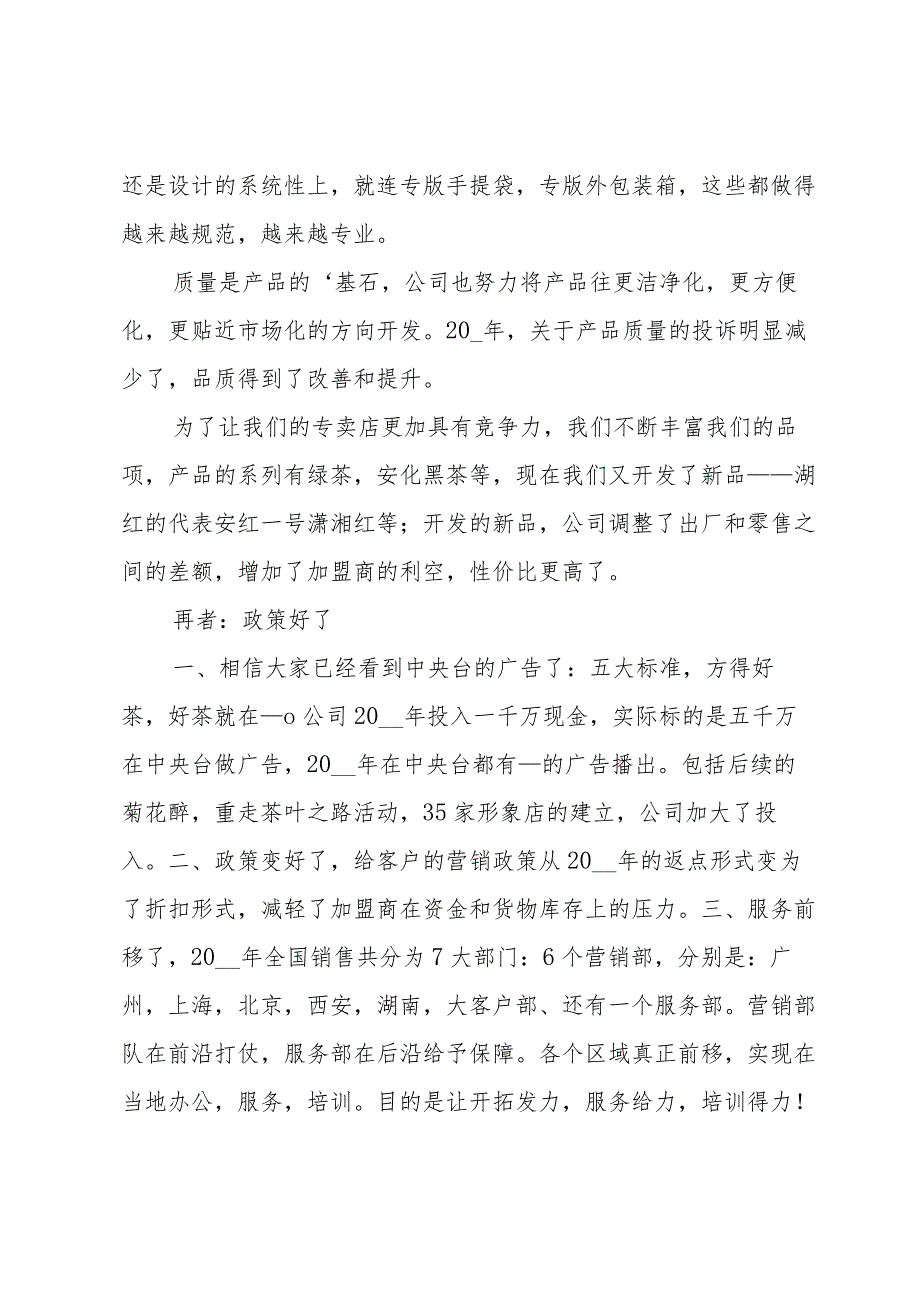 还是设计的系统性上，就连专版手提袋，专版外包装箱，这些都做得
越来越规范，越来越专业。
质量是产品的‘基石，公司也努力将产品往更洁净化，更方便
化，更贴近市场化的方向开发。20_年，关于产品质量的投诉明显减
少了，品质得到了改善和提升。
为了让我们的专卖店更加具有竞争力，我们不断丰富我们的品
项，产品的系列有绿茶，安化黑茶等，现在我们又开发了新品——湖
红的代表安红一号潇湘红等；开发的新品，公司调整了出厂和零售之
间的差额，增加了加盟商的利空，性价比更高了。
再者：政策好了
一、相信大家已经看到中央台的广告了：五大标准，方得好
茶，好茶就在—o公司20__年投入一千万现金，实际标的是五千万
在中央台做广告，20__年在中央台都有—的广告播出。包括后续的
菊花醉，重走茶叶之路活动，35家形象店的建立，公司加大了投
入。二、政策变好了，给客户的营销政策从20__年的返点形式变为
了折扣形式，减轻了加盟商在资金和货物库存上的压力。三、服务前
移了，20__年全国销售共分为7大部门：6个营销部，分别是：广
州，上海，北京，西安，湖南，大客户部、还有一个服务部。营销部
队在前沿打仗，服务部在后沿给予保障。各个区域真正前移，实现在
当地办公，服务，培训。目的是让开拓发力，服务给力，培训得力！